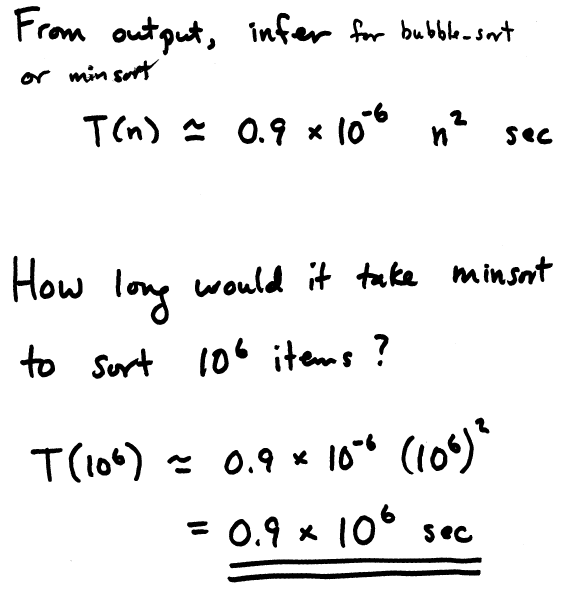 From output, infer for bubble-sort
or minsort
T(n) ≃ 0.9 × 10⁻⁶ n² sec
How long would it take minsort
to sort 10⁶ items?
T(10⁶) ≈ 0.9 × 10⁻⁶ (10⁶)²
= 0.9 × 10⁶ sec